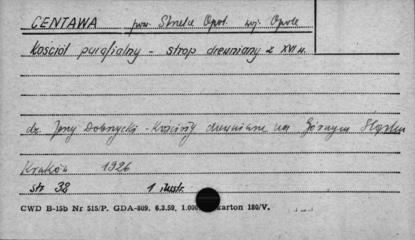 CENTAWA pow. Strzelce Opol. woj. Opole
Kościół parafialny - strop drewniany z XVI w.
dz. Jerzy Dobrzycki - Kościoły drewniane na Górnym Śląsku
Kraków 1926
str 38 1 ilustr.
CWD B-15b Nr 515/P. GDA-809. 6.3.59, 1.000 karton 180/V.